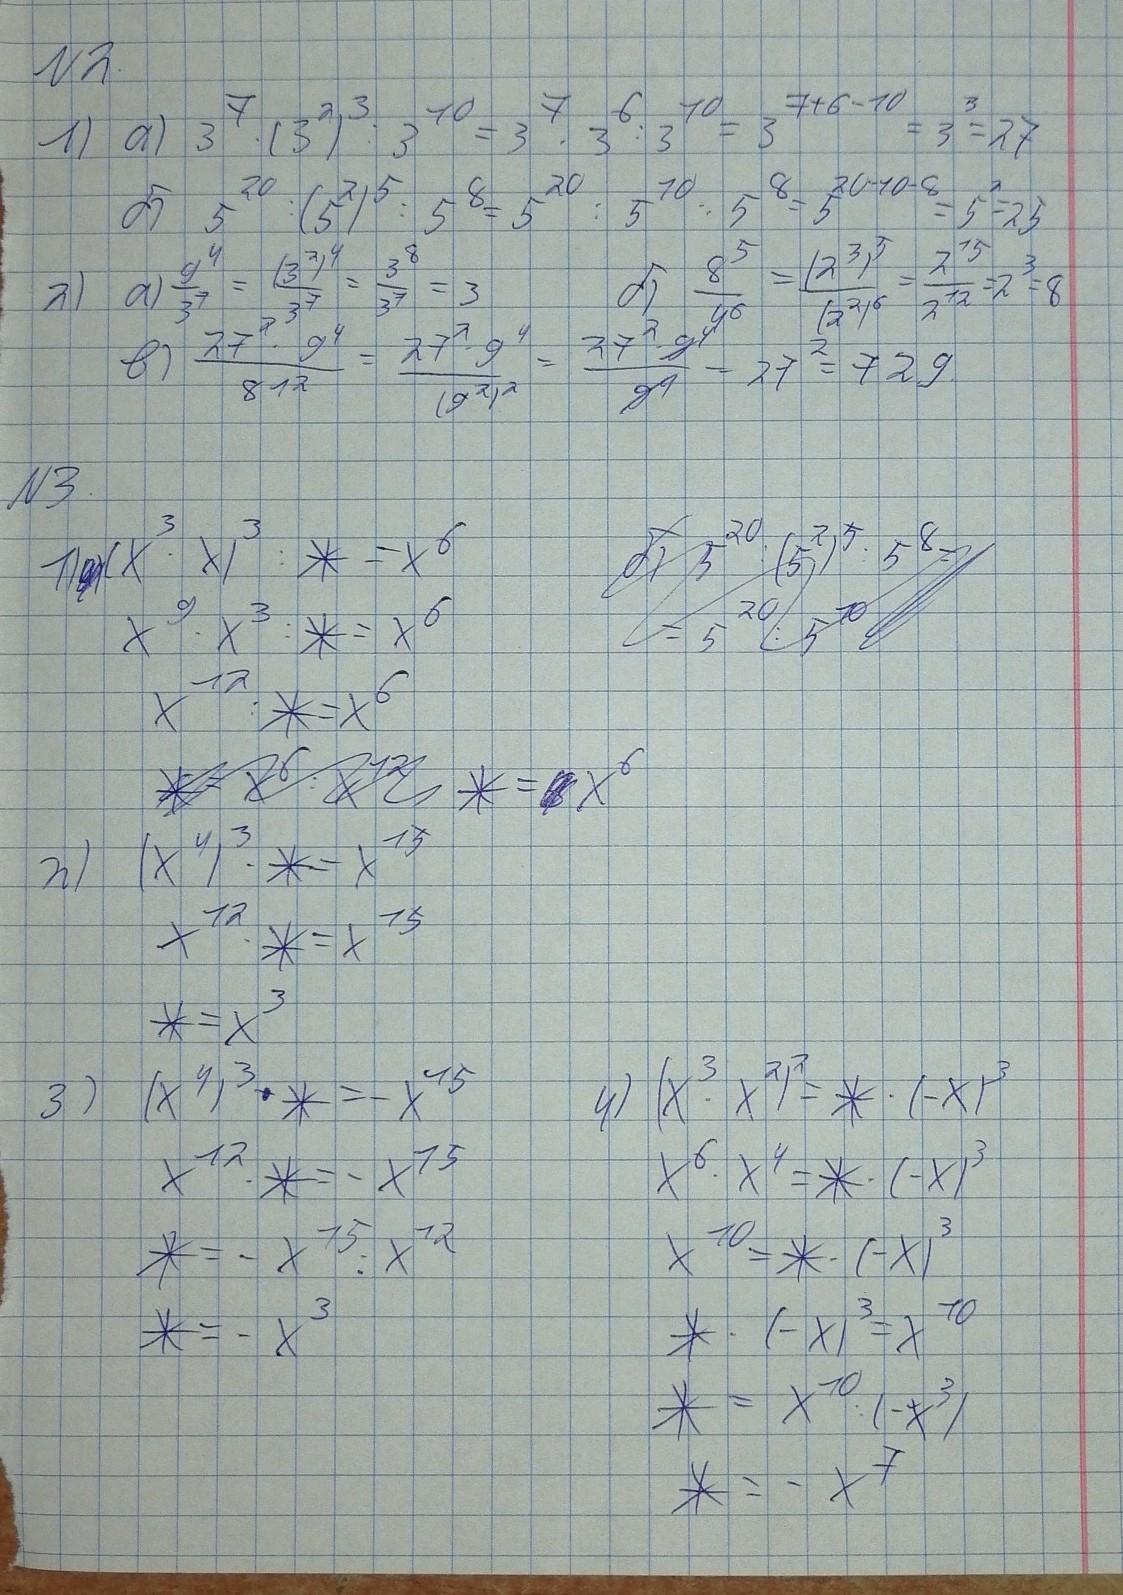 N2.
1) а) 3^7 · (3^2)^3 : 3^10 = 3^7 · 3^6 : 3^10 = 3^(7+6-10) = 3^3 = 27
б) 5^20 : (5^2)^5 : 5^8 = 5^20 : 5^10 : 5^8 = 5^(20-10-8) = 5^2 = 25
2) а) 9^4/3^7 = (3^2)^4/3^7 = 3^8/3^7 = 3 б) 8^5/4^6 = (2^3)^5/(2^2)^6 = 2^15/2^12 = 2^3 = 8
в) 27^2 · 9^4/81^2 = 27^2 · 9^4/(9^2)^2 = 27^2 · 9^4/9^4 = 27^2 = 729.
N3.
1) (x^3 · x)^3 : * = x^6
x^9 · x^3 : * = x^6
x^12 : * = x^6
* = x^6 : x^12 * = x^6
б) 5^20 : (5^2)^5 : 5^8 =
= 5^20 : 5^10
2) (x^4)^3 · * = x^15
x^12 · * = x^15
* = x^3
3) (x^4)^3 · * = - x^15
x^12 · * = - x^15
* = - x^15 : x^12
* = - x^3
4) (x^3 · x^2)^2 = * · (-x)^3
x^6 · x^4 = * · (-x)^3
x^10 = * · (-x)^3
* · (-x)^3 = x^10
* = x^10 : (-x^3)
* = - x^7